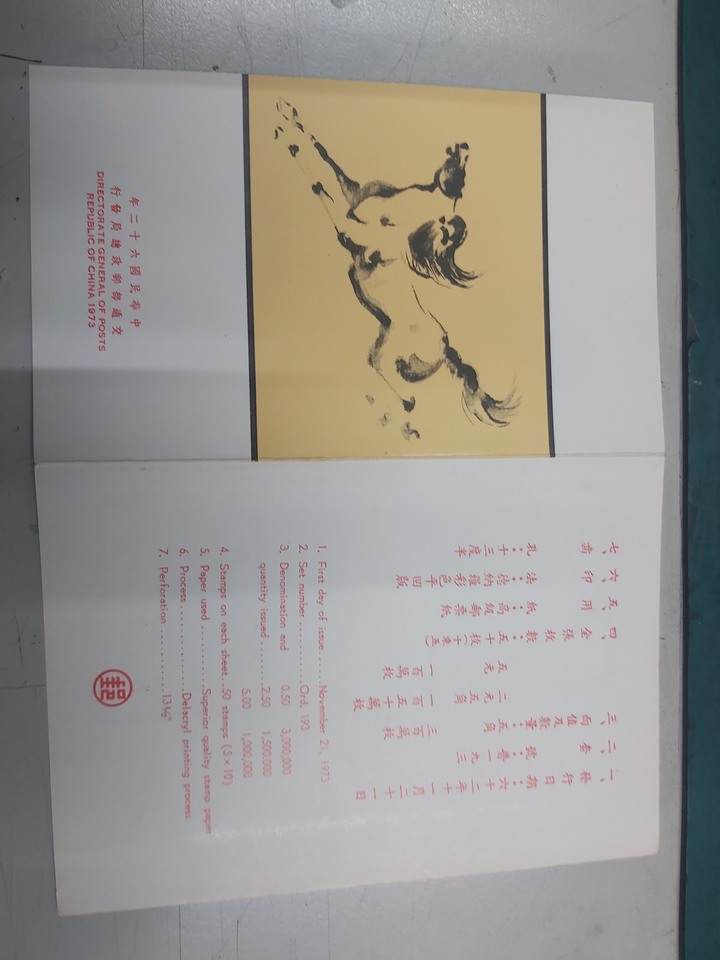 中華民國六十二年
交通部郵政總局發行
DIRECTORATE GENERAL OF POSTS
REPUBLIC OF CHINA 1973
一、發行日期：六十二年十一月二十一日
二、套號：普一九三
三、面值及數量：五角 三百萬枚
二元五角 一百五十萬枚
五元 一百萬枚
四、全張枚數：五十枚
五、用紙：高級郵票紙
六、印法：德納羅彩色平凹版
七、齒孔：十三度半
1. First day of issue......November 21, 1973
2. Set number...........Ord. 193
3. Denomination and 0.50 3,000,000
quantity issued........2.50 1,500,000
5.00 1,000,000
4. Stamps on each sheet..50 stamps (5×10)
5. Paper used...........Superior quality stamp paper
6. Process..............Delacryl printing process
7. Perforation...........13½"
郵